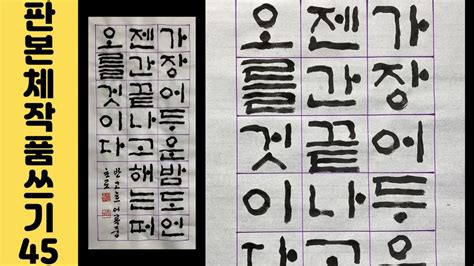 판본체작품쓰기45
가장어두운밤도언
젠간끝나고해는떠
오를것이다
반고흐어록중
가장어두운
젠간끝나고
오를것이다